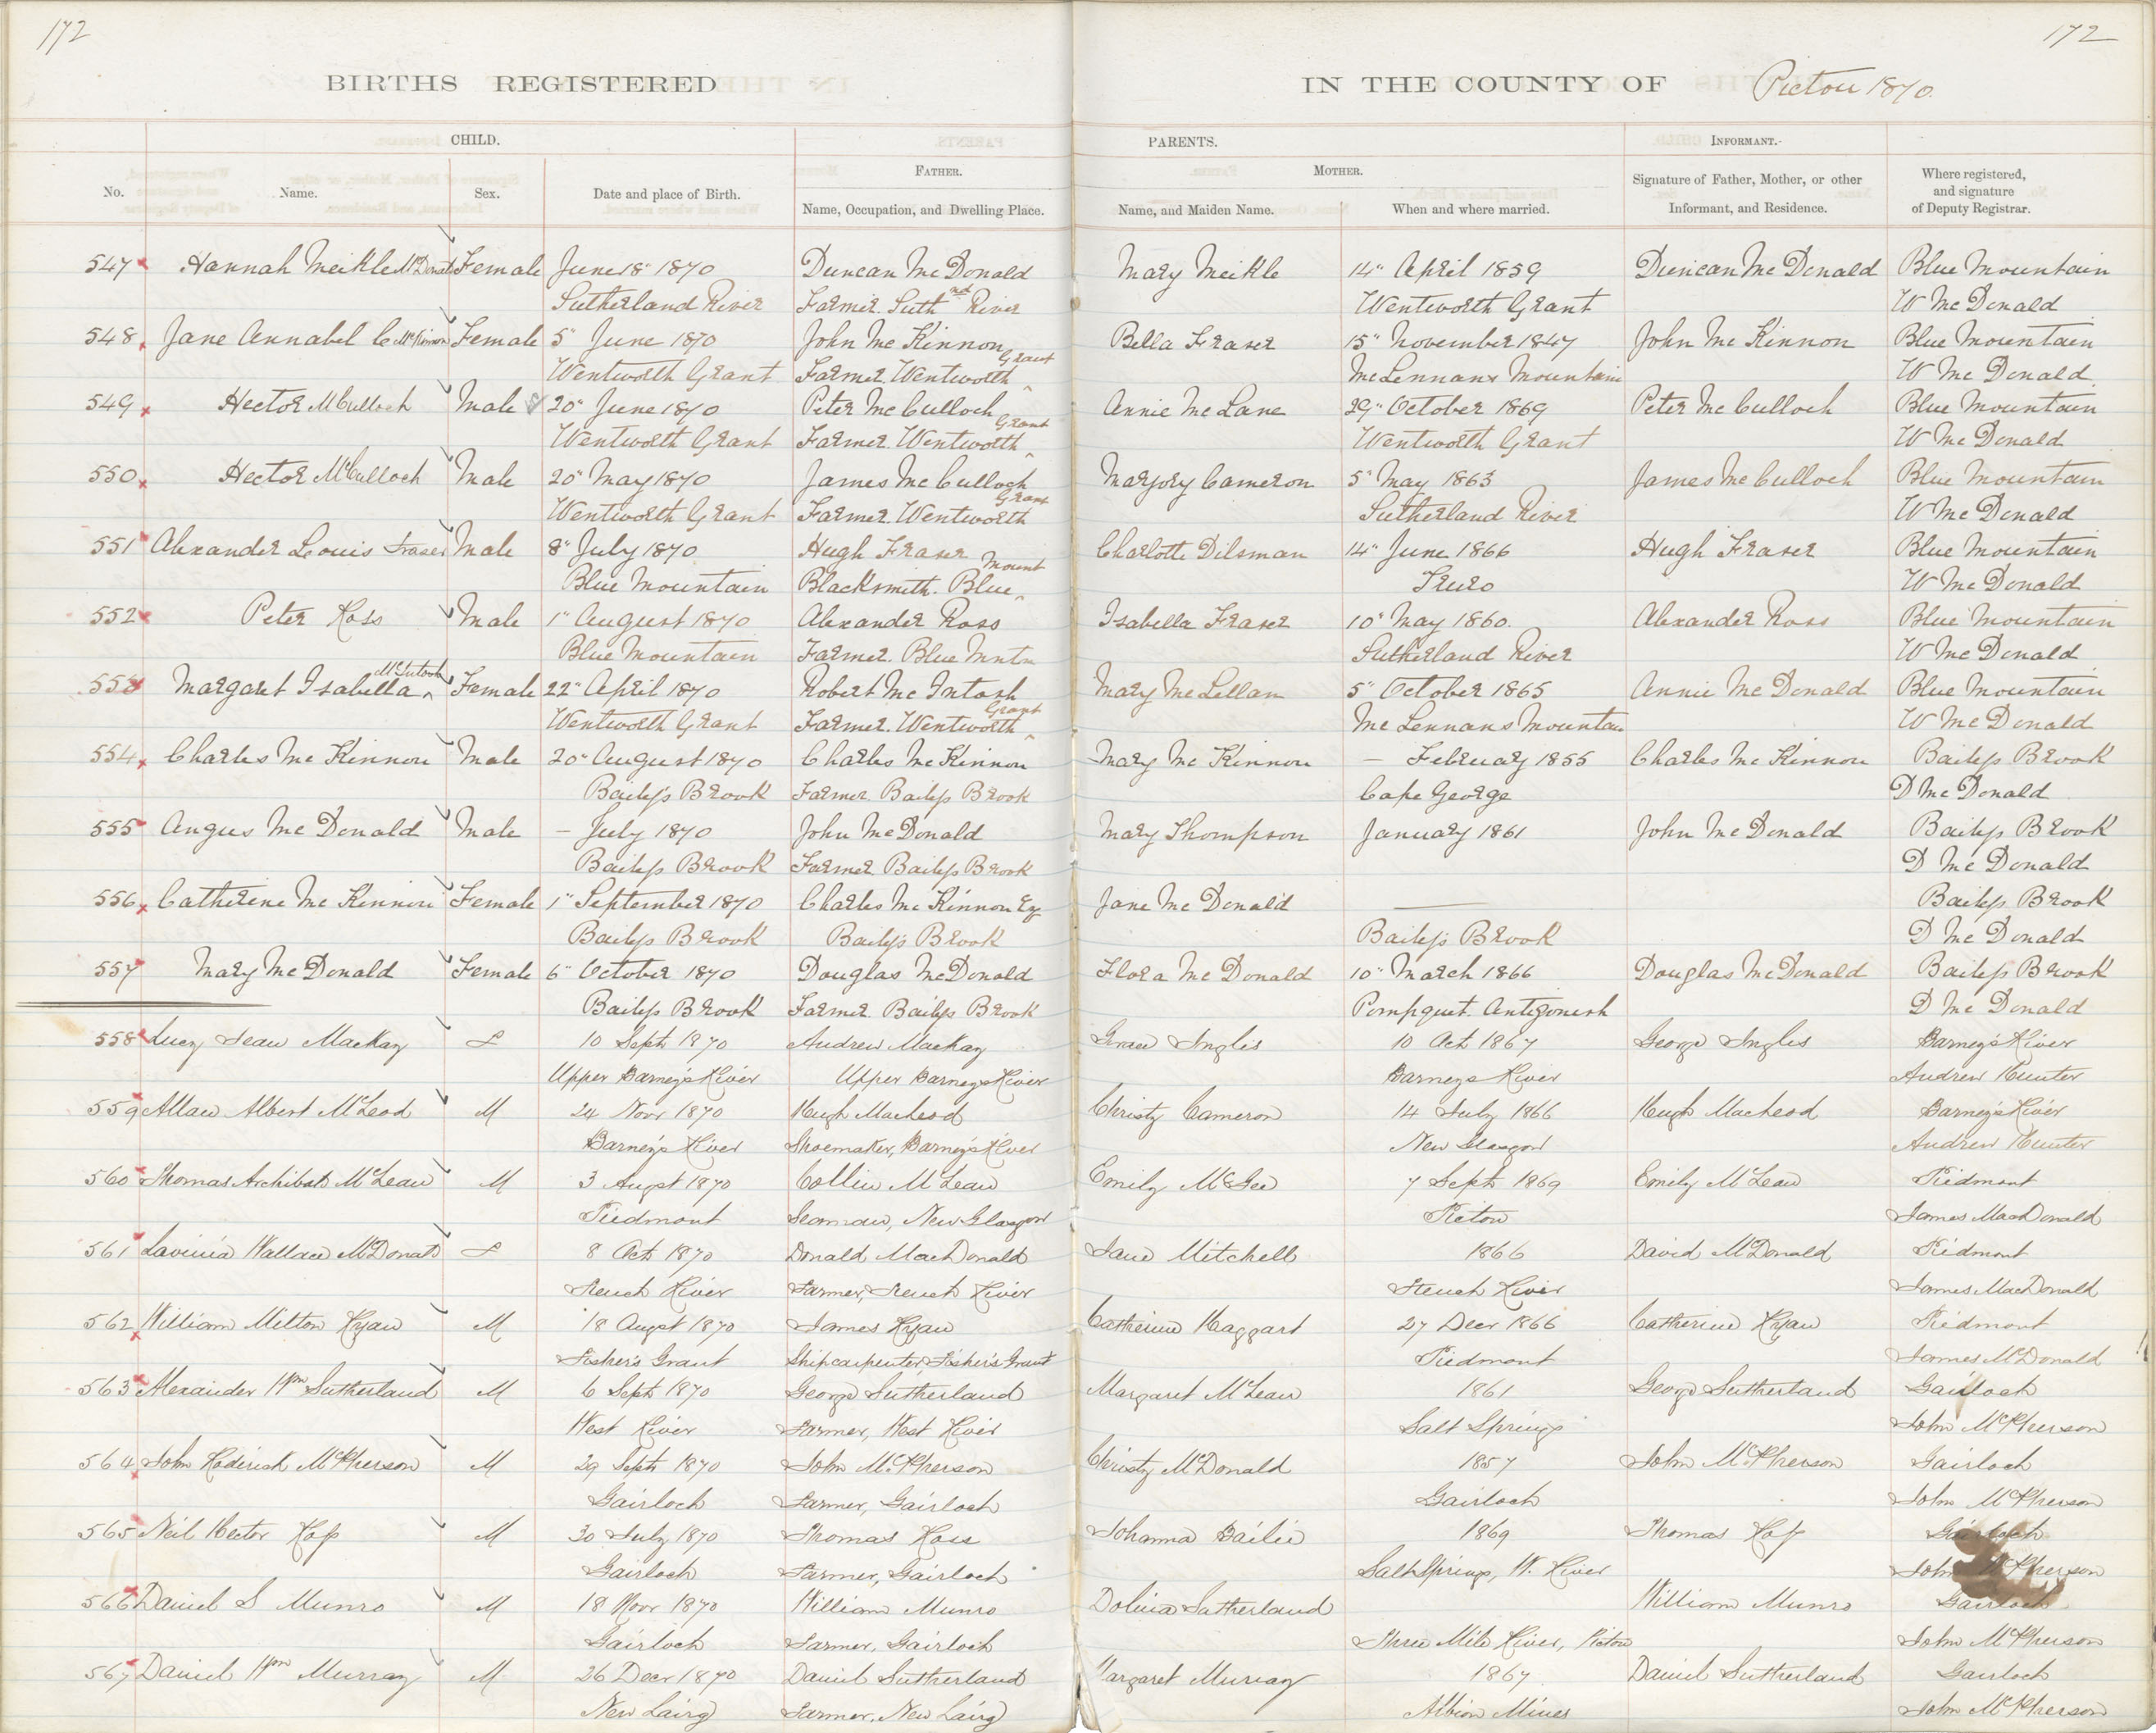 172
172
BIRTHS REGISTERED IN THE COUNTY OF Pictou 1870.
CHILD. PARENTS. INFORMANT.
FATHER. MOTHER.
No. Name. Sex. Date and place of Birth. Name, Occupation, and Dwelling Place. Name, and Maiden Name. When and where married. Signature of Father, Mother, or other Informant, and Residence. Where registered, and signature of Deputy Registrar.
547 Hannah Meikle McDonald Female June 18" 1870 Duncan Mc Donald Mary Meikle 14" April 1859 Duncan Mc Donald Blue Mountain
Sutherland River Farmer. Suthnd River Wentworth Grant W Mc Donald
548 Jane Annabel C McKinnon Female 5" June 1870 John Mc Kinnon Bella Fraser 15" November 1847 John Mc Kinnon Blue Mountain
Wentworth Grant Farmer. Wentworth Grant McLennans Mountain W Mc Donald
549 Hector McCulloch Male 20" June 1870 Peter Mc Culloch Annie Mc Lane 29" October 1869 Peter Mc Culloch Blue Mountain
Wentworth Grant Farmer. Wentworth Grant Wentworth Grant W Mc Donald
550 Hector McCulloch Male 20" May 1870 James Mc Culloch Marjory Cameron 5" May 1863 James Mc Culloch Blue Mountain
Wentworth Grant Farmer. Wentworth Grant Sutherland River W Mc Donald
551 Alexander Louis Fraser Male 8" July 1870 Hugh Fraser Charlotte Dilsman 14" June 1866 Hugh Fraser Blue Mountain
Blue Mountain Blacksmith. Blue Mount Truro W Mc Donald
552 Peter Ross Male 1" August 1870 Alexander Ross Isabella Fraser 10" May 1860. Alexander Ross Blue Mountain
Blue Mountain Farmer. Blue Mntn Sutherland River W Mc Donald
553 Margaret Isabella McIntosh Female 22" April 1870 Robert Mc Intosh Mary Mc Lellan 5" October 1865 Annie Mc Donald Blue Mountain
Wentworth Grant Farmer. Wentworth Grant Mc Lennans Mountain W Mc Donald
554 Charles Mc Kinnon Male 20" August 1870 Charles Mc Kinnon Mary Mc Kinnon – February 1855 Charles Mc Kinnon Bailys Brook
Baily's Brook Farmer. Bailys Brook Cape George D Mc Donald
555 Angus Mc Donald Male – July 1870 John Mc Donald Mary Thompson January 1861 John Mc Donald Bailys Brook
Bailys Brook Farmer Bailys Brook D Mc Donald
556 Catherine Mc Kinnon Female 1" September 1870 Charles Mc Kinnon Esq Jane Mc Donald —— Bailys Brook
Bailys Brook Baily's Brook Baily's Brook D Mc Donald
557 Mary Mc Donald Female 6" October 1870 Douglas McDonald Flora Mc Donald 10" March 1866 Douglas McDonald Bailys Brook
Bailys Brook Farmer. Bailys Brook Pompquet. Antigonish D Mc Donald
558 Lucy Jean MacKay F 10 Sept 1870 Andrew MacKay Grace Inglis 10 Oct 1867 George Inglis Barney's River
Upper Barney's River Upper Barneys River Barneys River Andrew Hunter
559 Allan Albert McLeod M 24 Novr 1870 Hugh MacLeod Christy Cameron 14 July 1866 Hugh MacLeod Barney's River
Barney's River Shoemaker, Barney's River New Glasgow Andrew Hunter
560 Thomas Archibald McLean M 3 Augst 1870 Collin McLean Emily McGee 7 Sept 1869 Emily McLean Piedmont
Piedmont Seaman, New Glasgow Pictou James MacDonald
561 Lavinia Wallace McDonald F 8 Oct 1870 Donald MacDonald Jane Mitchell 1866 David McDonald Piedmont
French River Farmer, French River French River James MacDonald
562 William Milton Ryan M 18 Augst 1870 James Ryan Catherine Haggart 27 Decr 1866 Catherine Ryan Piedmont
Fisher's Grant Shipcarpenter, Fisher's Grant Piedmont James McDonald
563 Alexander Wm Sutherland M 6 Sept 1870 George Sutherland Margaret McLean 1861 George Sutherland Gairloch
West River Farmer, West River Salt Springs John McPherson
564 John Roderick McPherson M 29 Sept 1870 John McPherson Christy McDonald 1857 John McPherson Gairloch
Gairloch Farmer, Gairloch Gairloch John McPherson
565 Neil Hector Ross M 30 July 1870 Thomas Ross Johanna Bailie 1869 Thomas Ross Gairloch
Gairloch Farmer, Gairloch Salt Springs, W. River John McPherson
566 Daniel S Munro M 18 Novr 1870 William Munro Dolina Sutherland William Munro Gairloch
Gairloch Farmer, Gairloch Three Mile River, Pictou John McPherson
567 Daniel Wm Murray M 26 Decr 1870 Daniel Sutherland Margaret Murray 1867 Daniel Sutherland Gairloch
New Lairg Farmer, New Lairg Albion Mines John McPherson